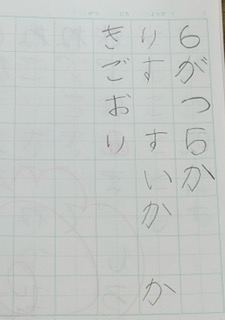 6がつ5か
りす すいか か
きごおり